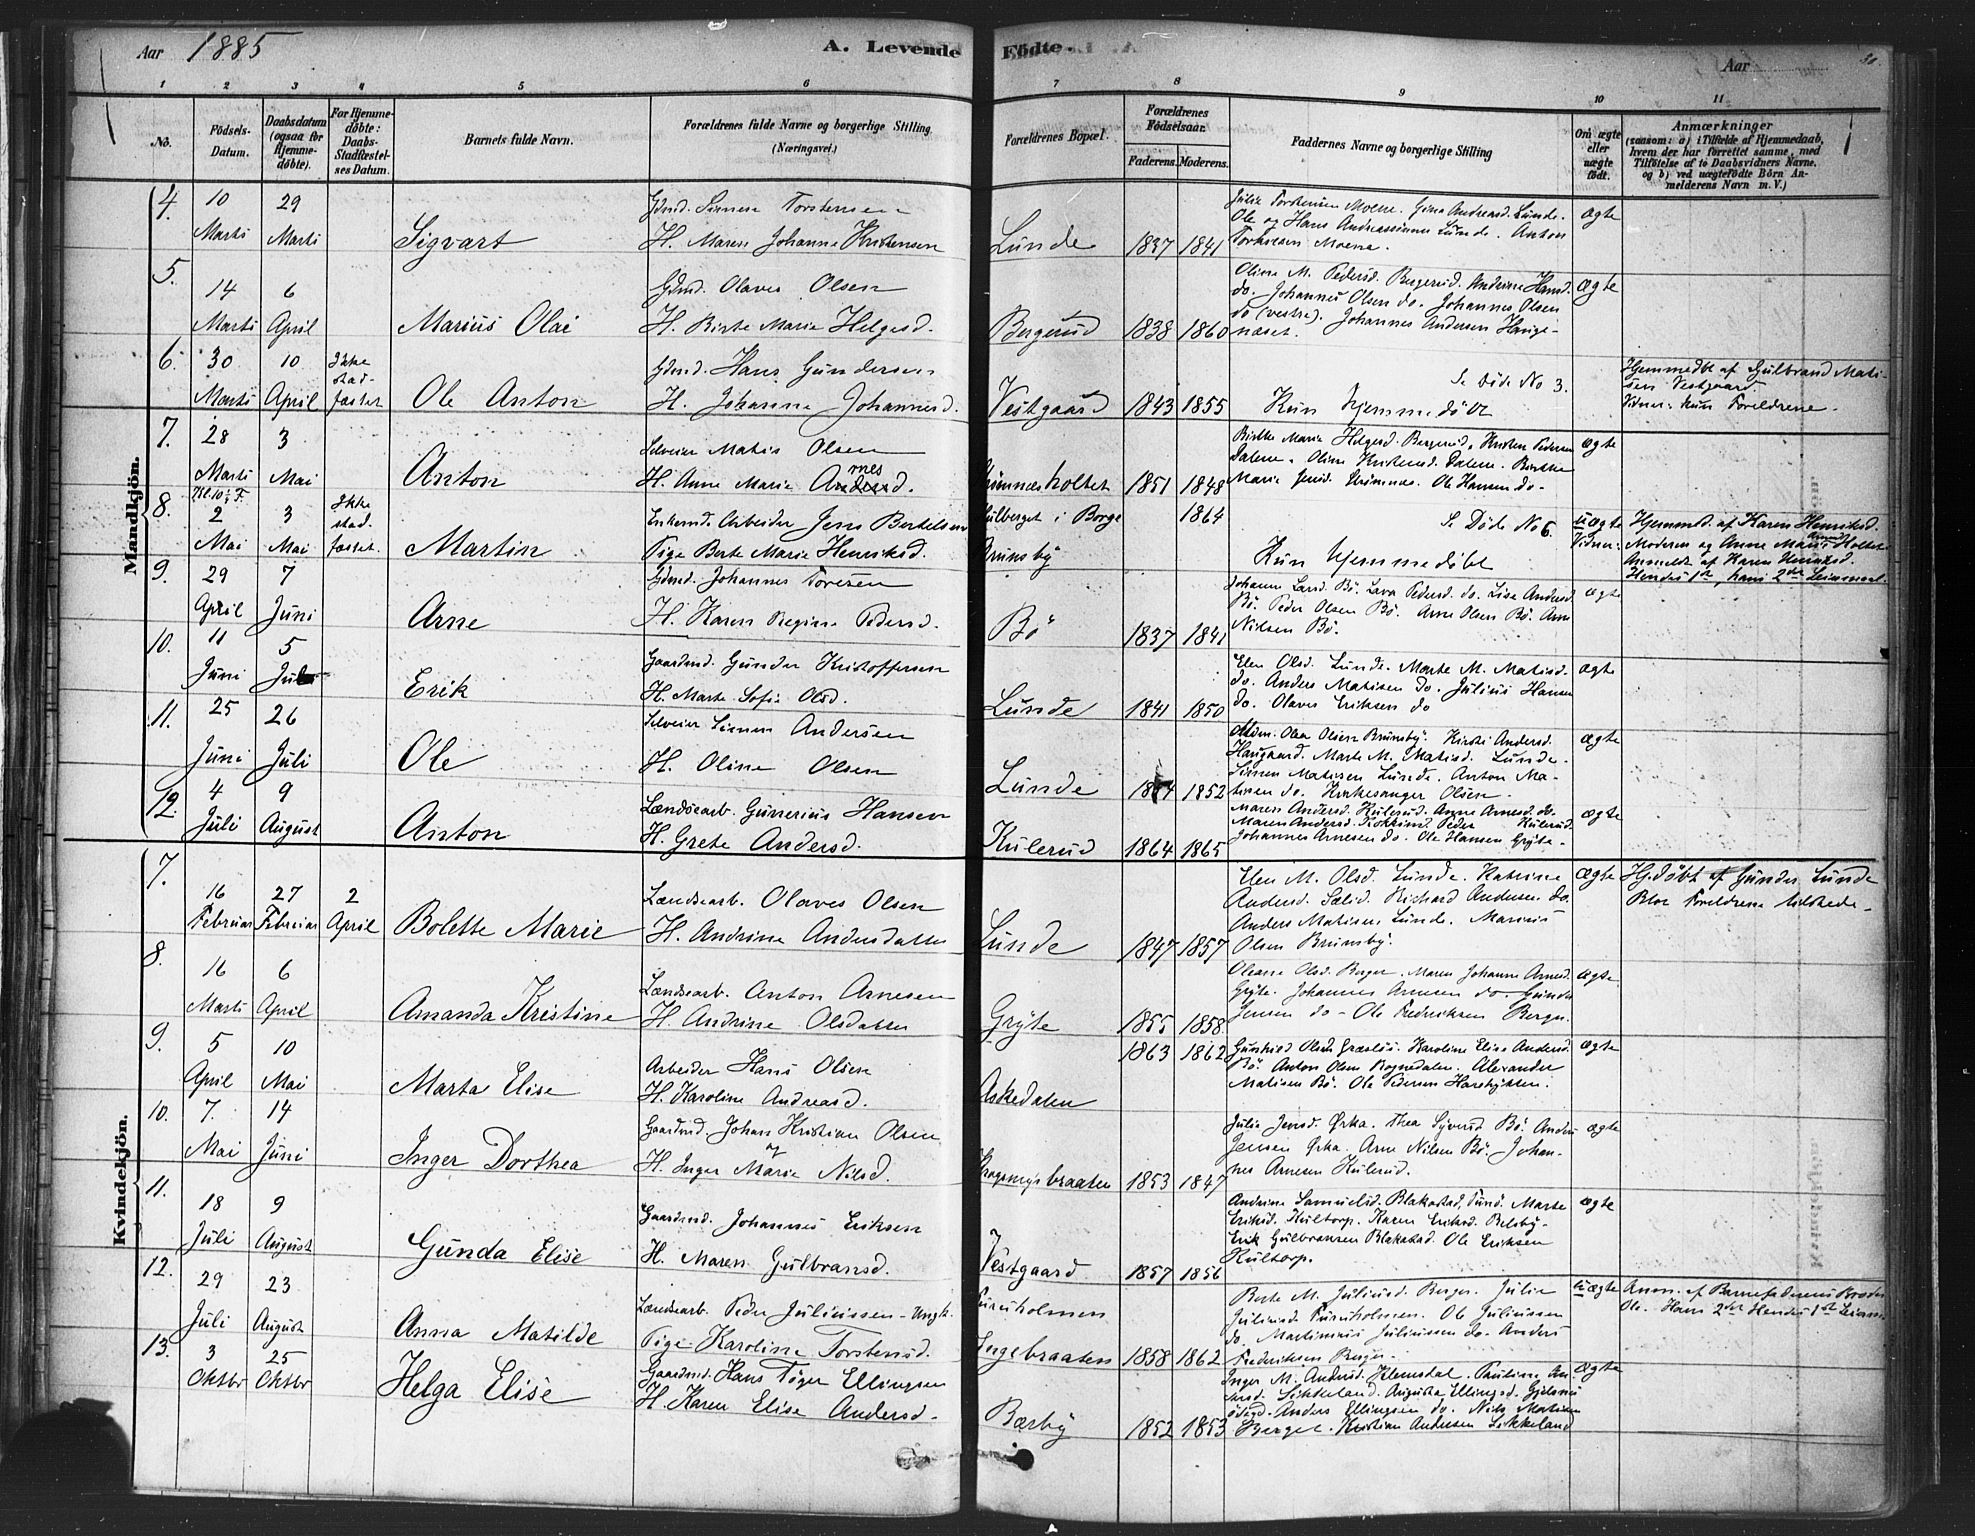 Aar 1885
A. Levende Födte.
Aar
30.
1 2 3 4 5 6 7 8 9 10 11
No.
Födsels-Datum.
Daabsdatum (ogsaa for Hjemme-döbte).
For Hjemme-döbte: Daabs-Stadfæstel-ses Datum.
Barnets fulde Navn.
Forældrenes fulde Navne og borgerlige Stilling. (Næringsvei.)
Forældrenes Bopæl.
Forældrenes Födselsaar.
Faderens. Moderens.
Faddernes Navne og borgerlige Stilling
Om ægte eller uægte födt.
Anmærkninger
(saasom: a) i Tilfælde af Hjemmedaab, hvem der har forrettet samme, med Tilföielse af to Daabsvidners Navne, og b) ved uægtefödte Börn An-melderens Navn m. V.)
Mandkjön.
4. 10 Marts 29 Marts
Sigvart
Gdmd. Simen Torstensen
H. Maren Johanne Kristensen
Lunde 1837 1841
Julie Torstensen Moene. Gina Andreasd. Lunde.
Ole og Hans Andreassønner Lunde. Anton
Torstensen Moene.
ægte
5. 14 Marts 6 April
Marius Olai
Gdmd. Olaves Olsen
H. Birte Marie Helgesd.
Bergerud 1838 1860
Oline M. Pedersd. Bergerud. Andrine Hansd.
do. Johannes Olsen do. Johannes Olsen
do (vestre). Johannes Andersen Hauge-
næset.
ægte
6. 30 Marts 10 April Ikke stad-fæstet
Ole Anton
Gdmd. Hans Gundersen
H. Johanne Johannesd.
Vestgaard 1843 1855
Se Døde No 3.
Kun hjemmedöbt
Hjemmedbt af Gulbrand Mati-
sen Vestgaard.
Vidner: kun Forældrene.
7. 28 Marts 3 Mai
Anton
Selveier Matis Olsen
H. Anne Marie Arnesd.
1851 1848
Birthe Marie Helgesd. Bergerud. Kristen Pedersen
Dalene. Oline Kristensd. Dalene. Birthe
Marie Jensd. Grimnæs. Ole Hansen do.
ægte
8. 2 Mai 3 Mai Ikke stad-fæstet
Martin
Enkemd. Arbeider Jens Bertelsen
Pige Berte Marie Henriksd.
i Borge
Brunsby
1864
Se Døde No 6.
Kun hjemmedöbt
uægte
Vidner:
Hjemmd. af Karen Henriksd.
Moderen og Anne Marie Holtet
Anmeldt af Karen Henriksd.
Hendes 1ste hans 2det Leiermaal.
9. 29 April 7 Juni
Arne
Gdmd. Johannes Toresen
H. Karen Regine Pedersd.
Bö 1837 1841
Johanne Larsd. Bö. Lava Pedersd. do. Lise Andersd.
Bö. Peder Olsen Bö. Arne Olsen Bö. Arne
Nilsen Bö.
ægte
10. 11 Juni 5 Juli
Erik
Gaardmd. Gunder Kristoffersen
H. Marte Sofie Olsd.
Lunde 1841 1850
Elen Olsd. Lunde. Marte M. Matisd.
do. Anders Matisen do. Julius Hansen
do. Olaves Eriksen do
ægte
11. 25 Juni 26 Juli
Ole
Selveier Simen Andersen
H. Oline Olsen
Lunde 1852
Olea Olsen Brunsby. Kirsti Andersd.
Haugaard. Marte M. Matisd. Lunde.
Simen Matisen Lunde. Anton Ma-
tisen do. Kirkesanger Olsen.
ægte
12. 4 Juli 9 August
Anton
Landsearb. Gunerius Hansen
H. Grete Andersd.
Kulerud 1864 1865
Maren Andersd. Kulerud. Anne Arnesd. do.
Maren Andersd. Peder Kulerud.
Johannes Arnesen do. Ole Hansen Gryte.
ægte
Kvindekjön.
7. 16 Februar 27 Februar 2 April
Bolette Marie
Landsearb. Olaves Olsen
H. Andrine Andersdatter
Lunde 1847 1857
Elen M. Olsd. Lunde. Katrine
Andersd. Sælid. Richard Andersen do.
Anders Matisen Lunde. Marius
Olsen Brunsby.
ægte
Hj.döbt af Gunder Lunde
Blot Forældrene tilstede.
8. 16 Marts 6 April
Amanda Kristine
Landsearb. Anton Arnesen
H. Andrine Olsdatter
Gryte 1855 1858
Oleane Olsd. Berger. Maren Johanne Arnesd.
Gryte. Johannes Arnesen do. Gunder
Jensen do - Ole Fredriksen Berger.
ægte
9. 5 April 10 Mai
Marta Elise
Arbeider Hans Olsen
H. Karoline Andreasd.
Askedalen 1863 1862
Gunhild Olsen Græslös. Karoline Elise Andersd.
Bö. Anton Olsen Rognedalen. Alexander
Matisen Bö. Ole Pedersen Harehytten.
ægte
10. 7. Mai 14 Juni
Inger Dorthea
Gaardmd. Johan Kristian Olsen
H. Inger Marie Nilsd.
1853 1847
Julie Jensd. Ørka. Thea Syversd Bö. Anders
Jensen Ørka. Arne Nilsen Bö. Johan-
nes Arnesen Kulerud.
ægte
11. 18 Juli 9 August
Gunda Elise
Gaardmd. Johannes Eriksen
H. Maren Gulbransd.
Vestgaard 1857 1856
Andrine Samuelsd. Blakestad, Tune. Marte
Eriksd. Kultorp. Karen Eriksd. Belsby.
Erik Gulbransen Blakestad. Ole Eriksen
Kultorp.
ægte
12. 29 Juli 23 August
Anna Matilde
Landsearb. Peder Juliussen - Ungk.
Pige Karoline Torstensd.
Furuholmen
Ingebraaten 1858 1862
Berte M. Juliusd. Berger. Julie
Juliusd. Furuholmen. Ole Juliussen
do. Martinius Juliussen do. Anders
Fredriksen Berger.
uægte
Anm. af Barnefaderens Broder
Ole. Hans 2det Hendes 1ste Leierm.
13. 3 Oktbr 25 Oktbr
Helga Elise
Gaardmd. Hans Töger Ellingsen
H. Karen Elise Andersd.
Bærby 1852 1853
Inger M. Andersd. Klemsdal. Pauline An-
dersd. Sikkeland. Augusta Ellingsd. Gjelsnes
ödegd. Anders Ellingsen do. Nils Matisen
Berget. Kristian Andersen Sikkeland
ægte